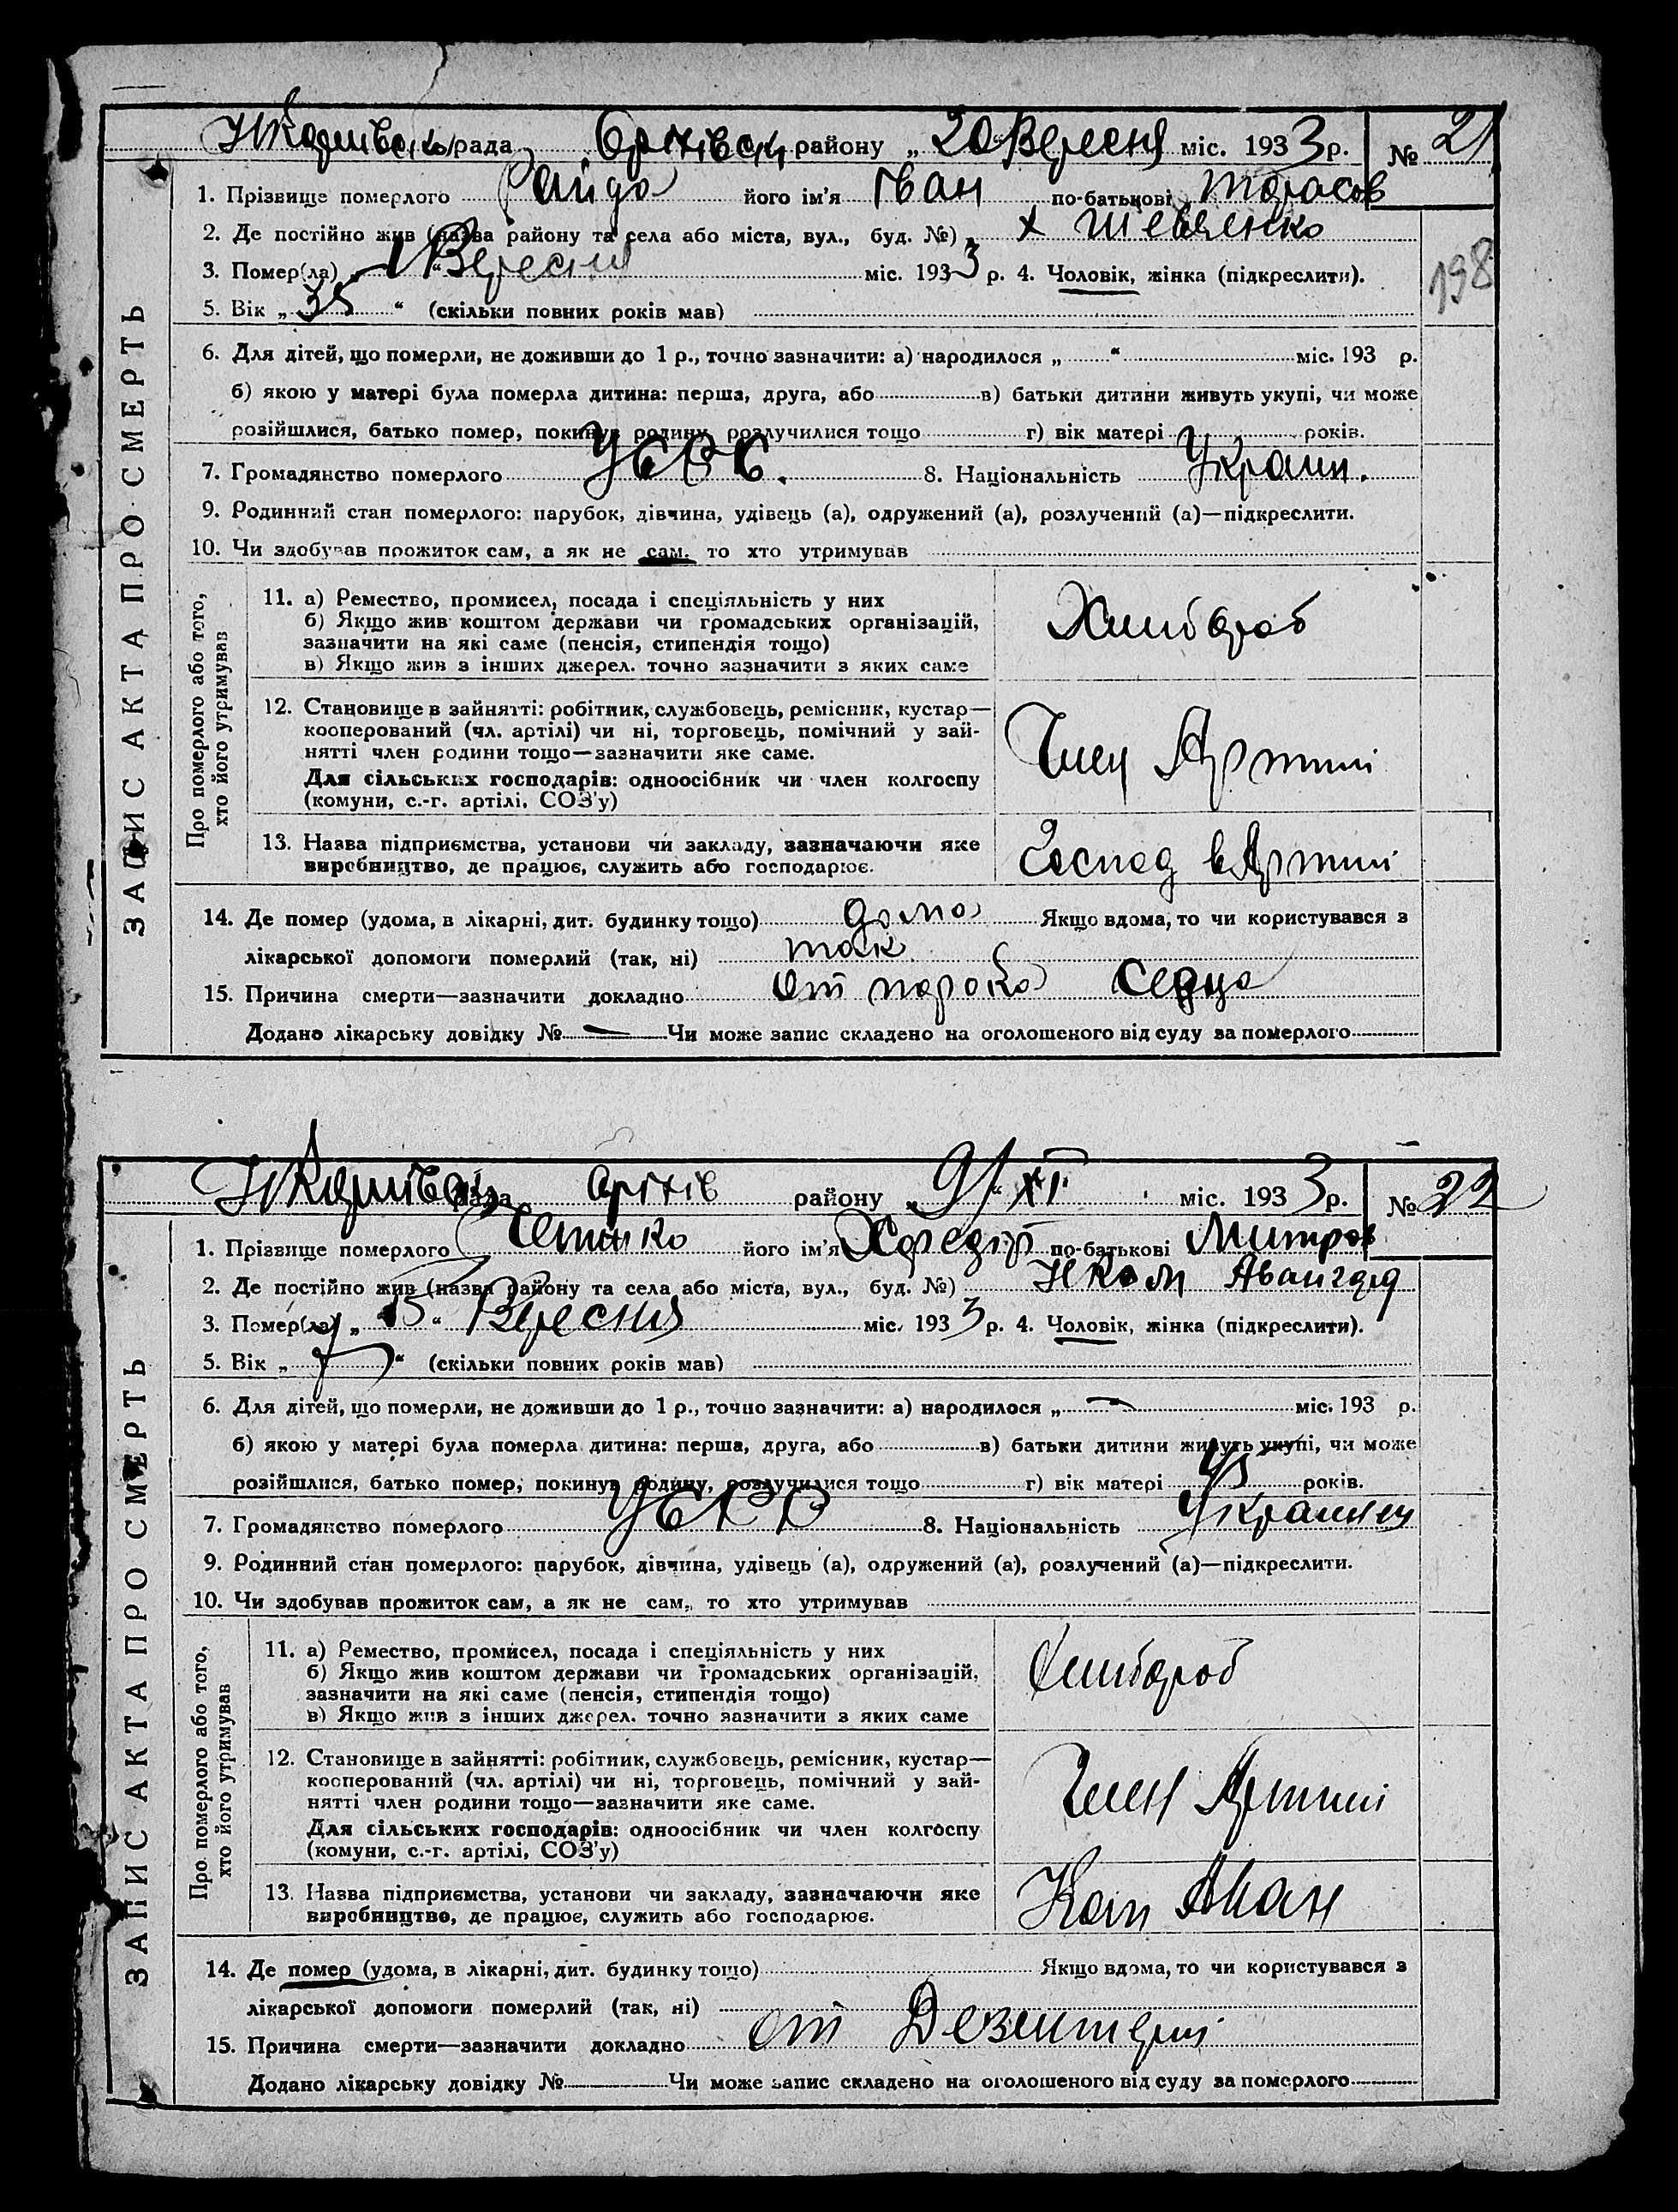 рада району „20" Вересня міс. 1933 р. № 21
1. Прізвище померлого його ім'я Іван по-батькові Тарасов
2. Де постійно жив (назва району та села або міста, вул., буд. №) х Шевченко
3. Помер(ла) „1" Вересня міс. 1933 р. 4. Чоловік, жінка (підкреслити).
198
5. Вік „35" (скільки повних років мав)
6. Для дітей, що померли, не доживши до 1 р., точно зазначити: а) народилося „ " міс. 193 р.
б) якою у матері була померла дитина: перша, друга, або в) батьки дитини живуть укупі, чи може
розійшлися, батько помер, покинув родину, розлучилися тощо г) вік матері років.
7. Громадянство померлого УСРС. 8. Національність Україн.
9. Родинний стан померлого: парубок, дівчина, удівець (а), одружений (а), розлучений (а)—підкреслити.
10. Чи здобував прожиток сам, а як не сам. то хто утримував
ЗАПИС АКТА ПРО СМЕРТЬ
Про померлого або того,
хто його утримував
11. а) Ремество, промисел, посада і спеціяльність у них
б) Якщо жив коштом держави чи громадських організацій,
зазначити на які саме (пенсія, стипендія тощо)
в) Якщо жив з інших джерел. точно зазначити з яких саме
Хлибороб
12. Становище в зайнятті: робітник, службовець, ремісник, кустар—
кооперований (чл. артілі) чи ні, торговець, помічний у зай-
нятті член родини тощо—зазначити яке саме.
Для сільських господарів: одноосібник чи член колгоспу
(комуни, с.-г. артілі, СОЗ'у)
Член Артилі
13. Назва підприємства, установи чи закладу, зазначаючи яке
виробництво, де працює, служить або господарює.
Господ в Артилі
14. Де помер (удома, в лікарні, дит. будинку тощо) дома Якщо вдома, то чи користувався з
лікарської допомоги померлий (так, ні) так
15. Причина смерти—зазначити докладно от порока Сердца
Додано лікарську довідку № — Чи може запис складено на оголошеного від суду за померлого
рада району „9/" XI міс. 1933 р. № 22
1. Прізвище померлого його ім'я по-батькові Митров
2. Де постійно жив (назва району та села або міста, вул., буд. №) Авангард
3. Помер(ла) „15" Вересня міс. 1933 р. 4. Чоловік, жінка (підкреслити).
5. Вік „7" (скільки повних років мав)
6. Для дітей, що померли, не доживши до 1 р., точно зазначити: а) народилося „— міс. 193 р.
б) якою у матері була померла дитина: перша, друга, або в) батьки дитини живуть укупі, чи може
розійшлися, батько помер, покинув родину, розлучилися тощо г) вік матері років.
7. Громадянство померлого УСРР 8. Національність Украинец
9. Родинний стан померлого: парубок, дівчина, удівець (а), одружений (а), розлучений (а)—підкреслити.
10. Чи здобував прожиток сам, а як не сам, то хто утримував
ЗАПИС АКТА ПРО СМЕРТЬ
Про померлого або того,
хто його утримував
11. а) Ремество, промисел, посада і спеціяльність у них
б) Якщо жив коштом держави чи громадських організацій,
зазначити на які саме (пенсія, стипендія тощо)
в) Якщо жив з інших джерел. точно зазначити з яких саме
Хлибороб
12. Становище в зайнятті: робітник, службовець, ремісник, кустар—
кооперований (чл. артілі) чи ні, торговець, помічний у зай-
нятті член родини тощо—зазначити яке саме.
Для сільських господарів: одноосібник чи член колгоспу
(комуни, с.-г. артілі, СОЗ'у)
Член Артилі
13. Назва підприємства, установи чи закладу, зазначаючи яке
виробництво, де працює, служить або господарює.
14. Де помер (удома, в лікарні, дит. будинку тощо) Якщо вдома, то чи користувався з
лікарської допомоги померлий (так, ні)
15. Причина смерти—зазначити докладно от Дезинтерии
Додано лікарську довідку № Чи може запис складено на оголошеного від суду за померлого